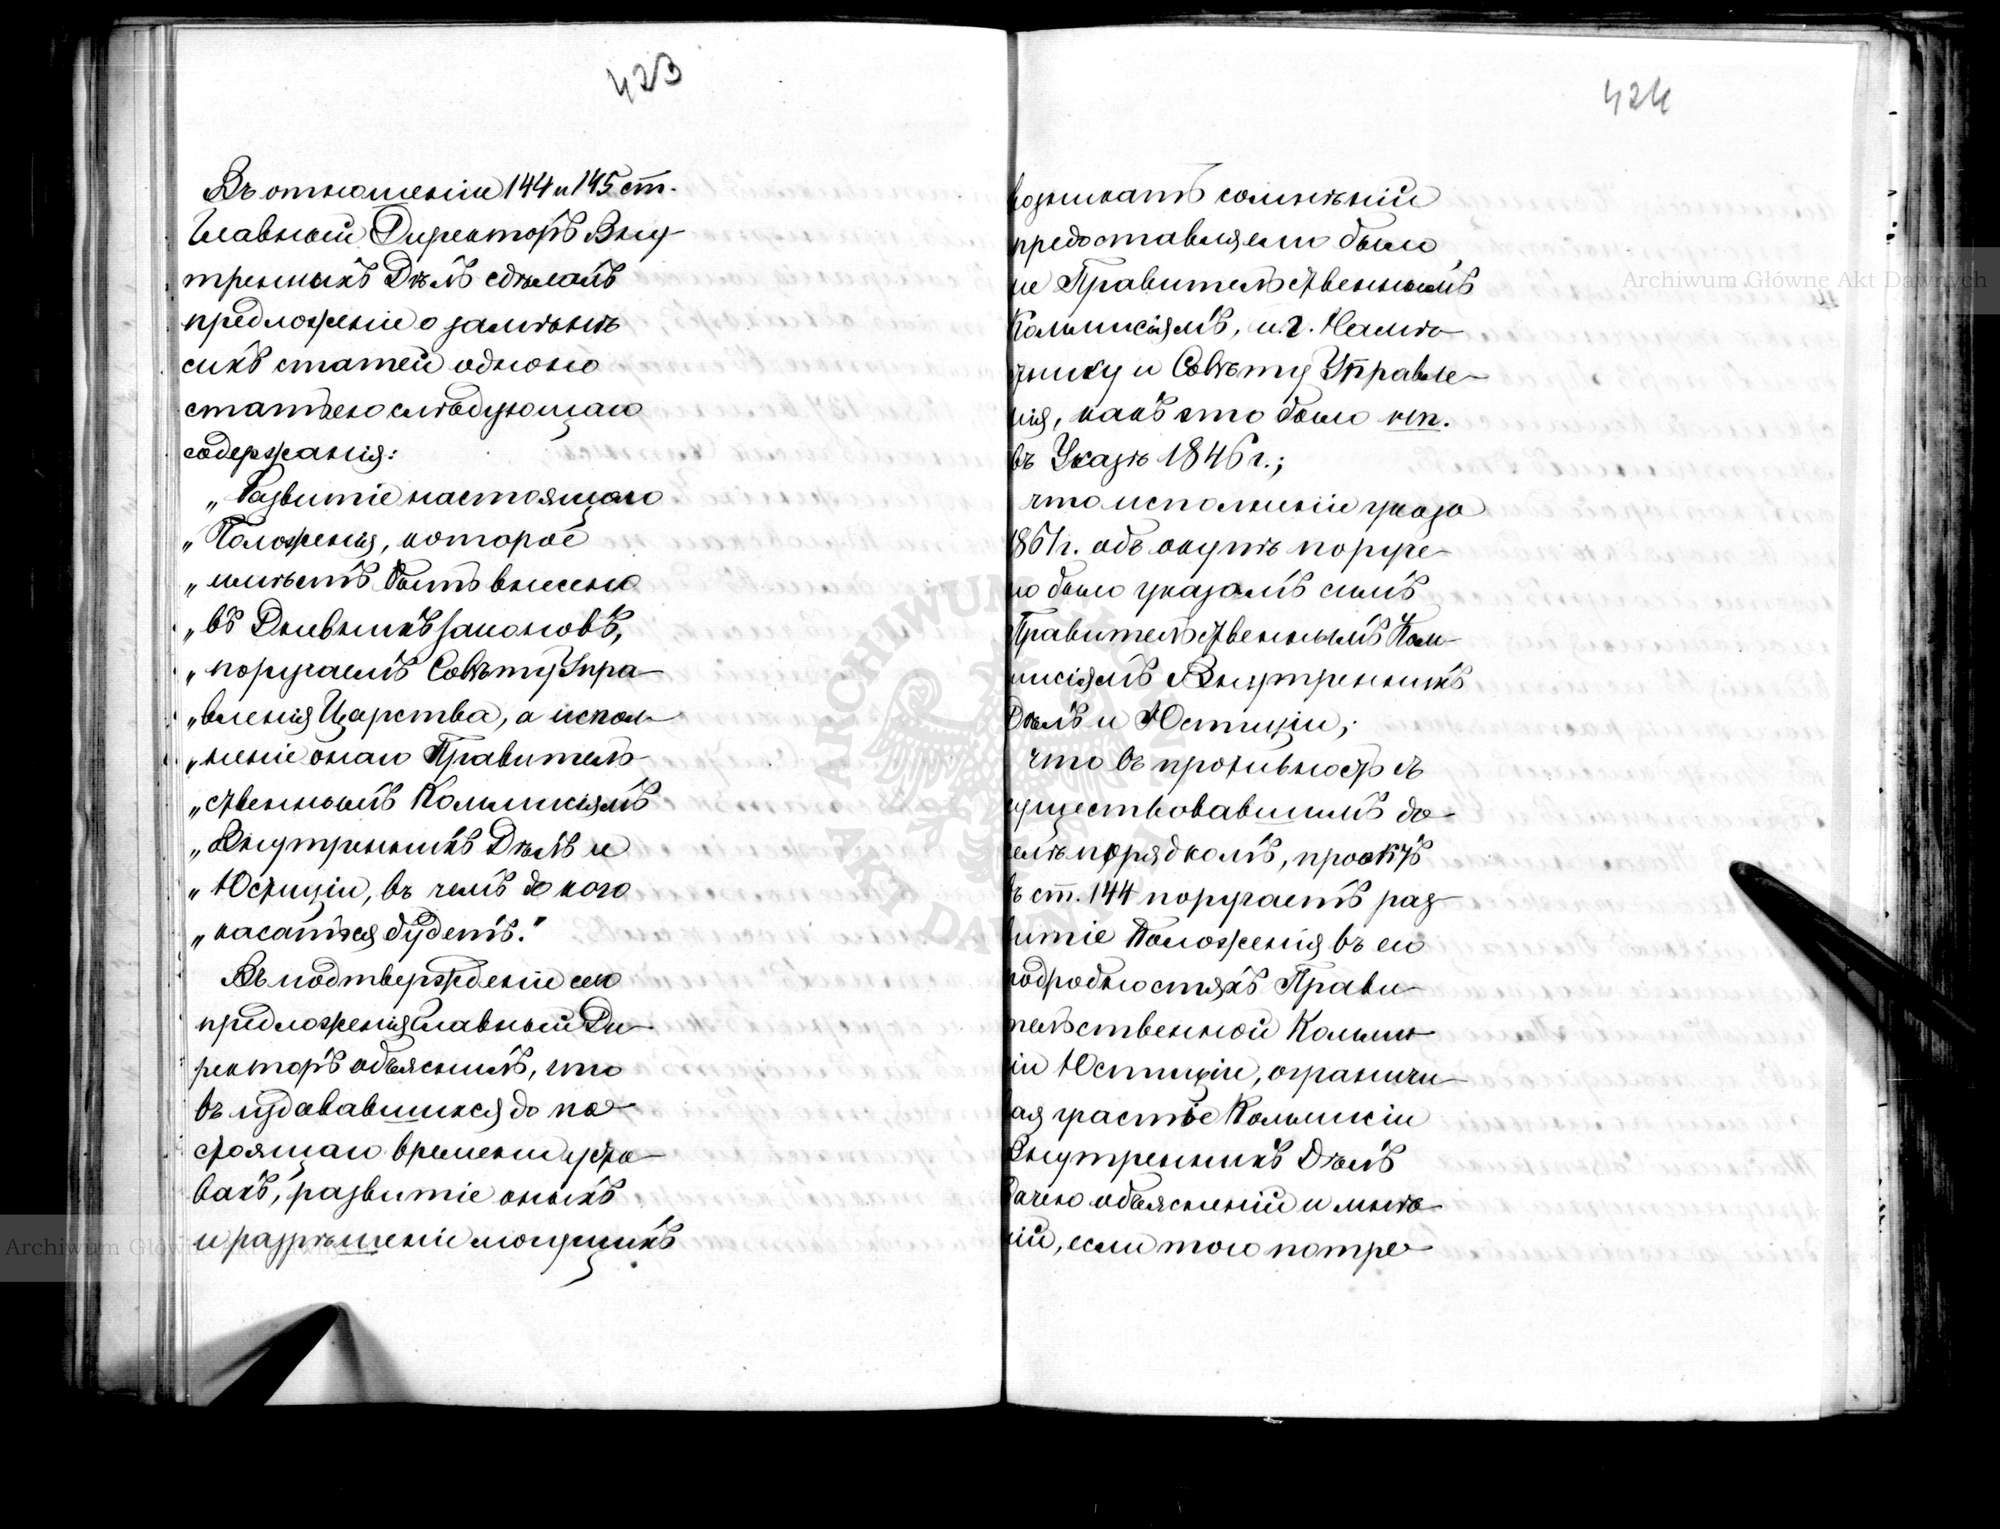 423
Въ отношеніи 144 и 145 ст.
Главный Директоръ Вну-
треннихъ Дѣлъ сдѣлалъ
предложеніе о замѣнѣ
сихъ статей одною
статьею слѣдующаго
содержанія:
„Развитіе настоящаго
„Положенія, которое
„имѣетъ быть внесено
„въ Дневникъ законовъ,
„поручаемъ Совѣту Упра-
„вленія Царства, а испол-
„неніе онаго Правитель-
„ственнымъ Коммисіямъ
„Внутреннихъ Дѣлъ и
„Юстиціи, въ чемъ до кого
„касаться будетъ."
Въ подтвержденіе сего
предложенія Главный Ди-
ректоръ объяснилъ, что
въ издававшихся до на-
стоящаго времени уста-
вахъ, развитіе оныхъ
и разрѣшеніе могущихъ
424
возникать сомнѣній
предоставляемо было
не Правительственнымъ
Коммисіямъ, и. г. Намѣс-
тнику и Совѣту Управле-
нія, какъ это было нп.
въ Указѣ 1846 г.;
что исполненіе указа
1861 г. объ окупѣ поруче-
но было указомъ симъ
Правительственнымъ Ком-
мисіямъ Внутреннихъ
Дѣлъ и Юстиціи;
что въ противность съ
существовавшимъ до-
селѣ порядкомъ, проэктъ
въ ст. 144 поручаетъ раз-
витіе Положенія въ его
подробностяхъ Прави-
тельственной Комми-
сіи Юстиціи, ограничи-
вая участіе Коммисіи
Внутреннихъ Дѣлъ
дачею объясненій и мнѣ-
ній, если того потре-
Archiwum Główne Akt Dawnych
ARCHIWUM GŁÓWNE AKT DAWNYCH
Archiwum Główne Akt Dawnych